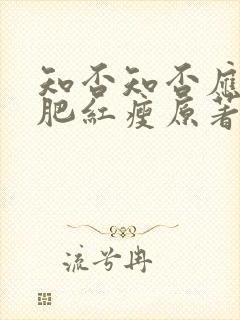 知否知否应
肥紅瘦原著
流兮冉